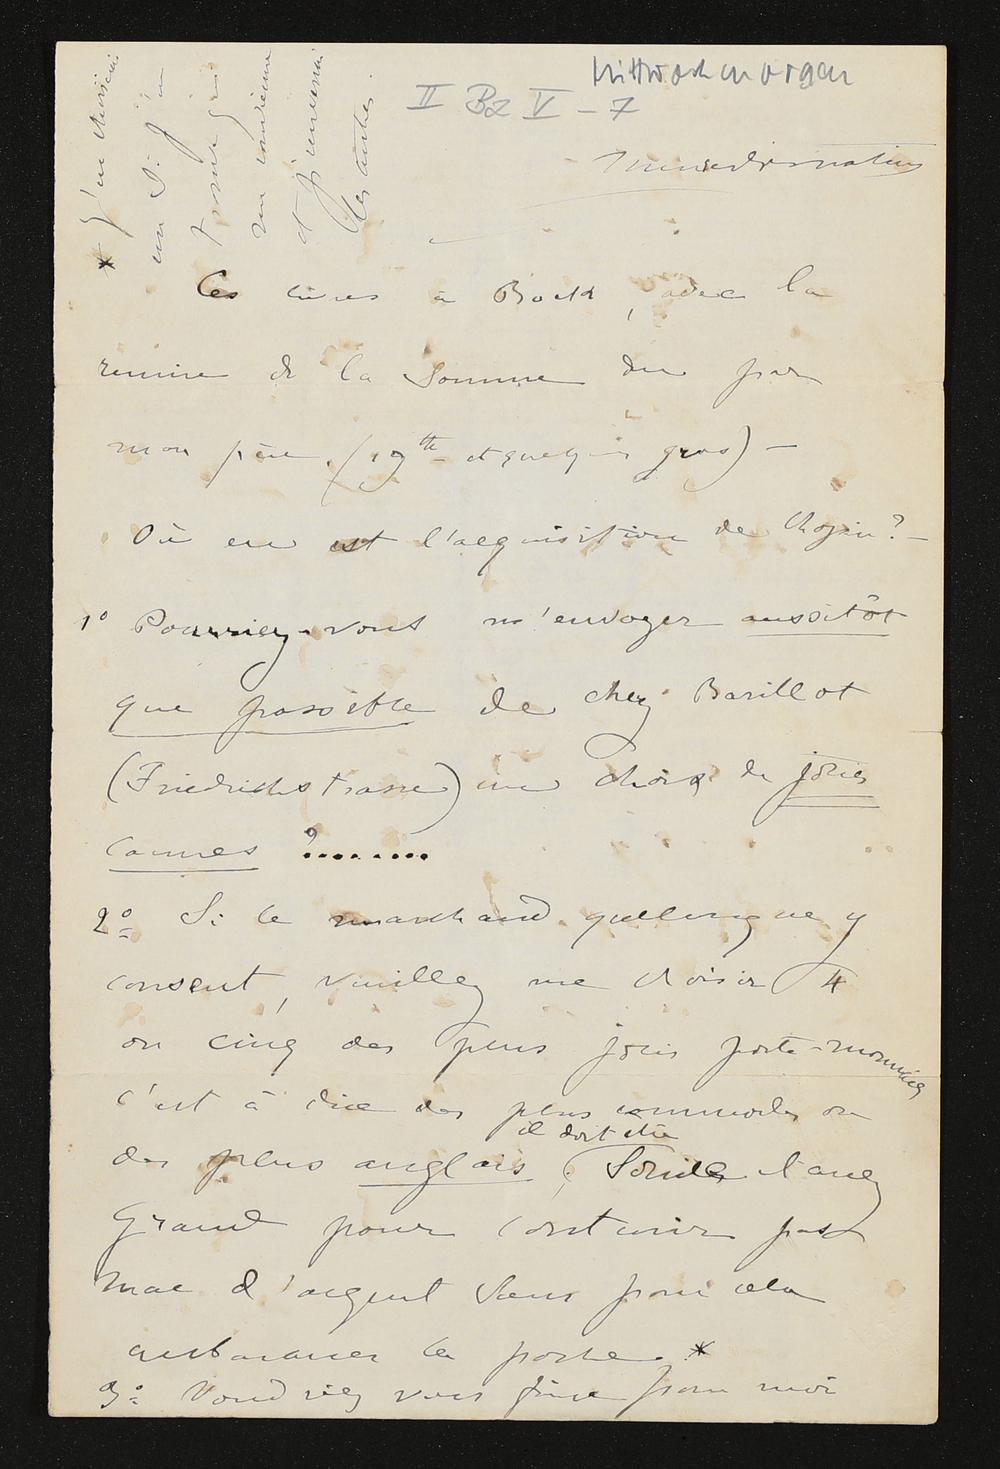 Mittwochmorgen
II Bz V – 7
Mercredi matin
Ces livres à Bock, avec la
remise de la somme due par
mon père (19 th et quelques gros) –
Où en est l'acquisition de Chopin? –
1º Pourriez-vous m'envoyer aussitôt
que possible de chez Barillot
(Friedrichstrasse) un choix de jolies
cannes ?........
2º Si le marchand quelconque y
consent, veuillez me choisir 4
ou cinq des plus jolis porte-monnaies
c'est à dire des plus commodes ou
des plus anglais, (il doit être solide et assez
grand pour contenir pas
mal d'argent sans pour cela
embarrasser la poche. *
3º Voudriez vous faire pour moi
* J'en choisirai
un si j'en
trouve
qui
me convienne
et j'enverrai
les autres.